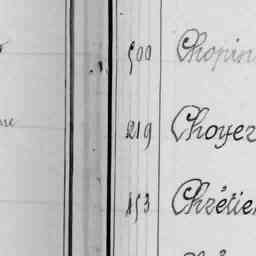 500 Chopin
219 Choyer
153 Chrétie